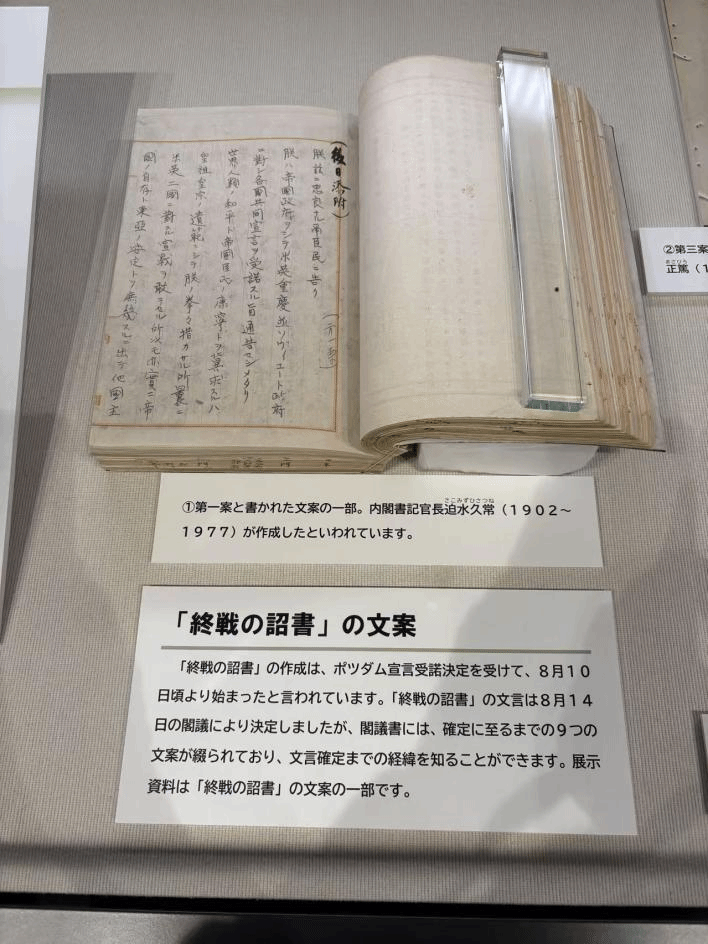 (後日添附)
朕玆ニ忠良ナル帝国臣民ニ告ク
朕ハ帝國政府ヲシテ米英重慶並ソヴィユート政府
ニ對シ各國共同宣言ヲ受諾スル旨通告セシメタリ
世界人類ノ和平ト帝國臣民ノ康寧トヲ冀求スルハ
皇祖皇宗ノ遺範ニシテ朕ノ拳々措カサル所曩ニ
米英二國ニ對スル宣戦ヲ敢テセル所以モ亦實ニ帝
國ノ自存ト東亜ノ安定トヲ
出テ他國主
②第三案
まさひろ
正篤(1
さこみずひさつね
①第一案と書かれた文案の一部。内閣書記官長迫水久常(1902~
1977)が作成したといわれています。
「終戦の詔書」の文案
「終戦の詔書」の作成は、ポツダム宣言受諾決定を受けて、8月10
日頃より始まったと言われています。「終戦の詔書」の文言は8月14
日の閣議により決定しましたが、閣議書には、確定に至るまでの9つの
文案が綴られており、文言確定までの経緯を知ることができます。展示
資料は「終戦の詔書」の文案の一部です。